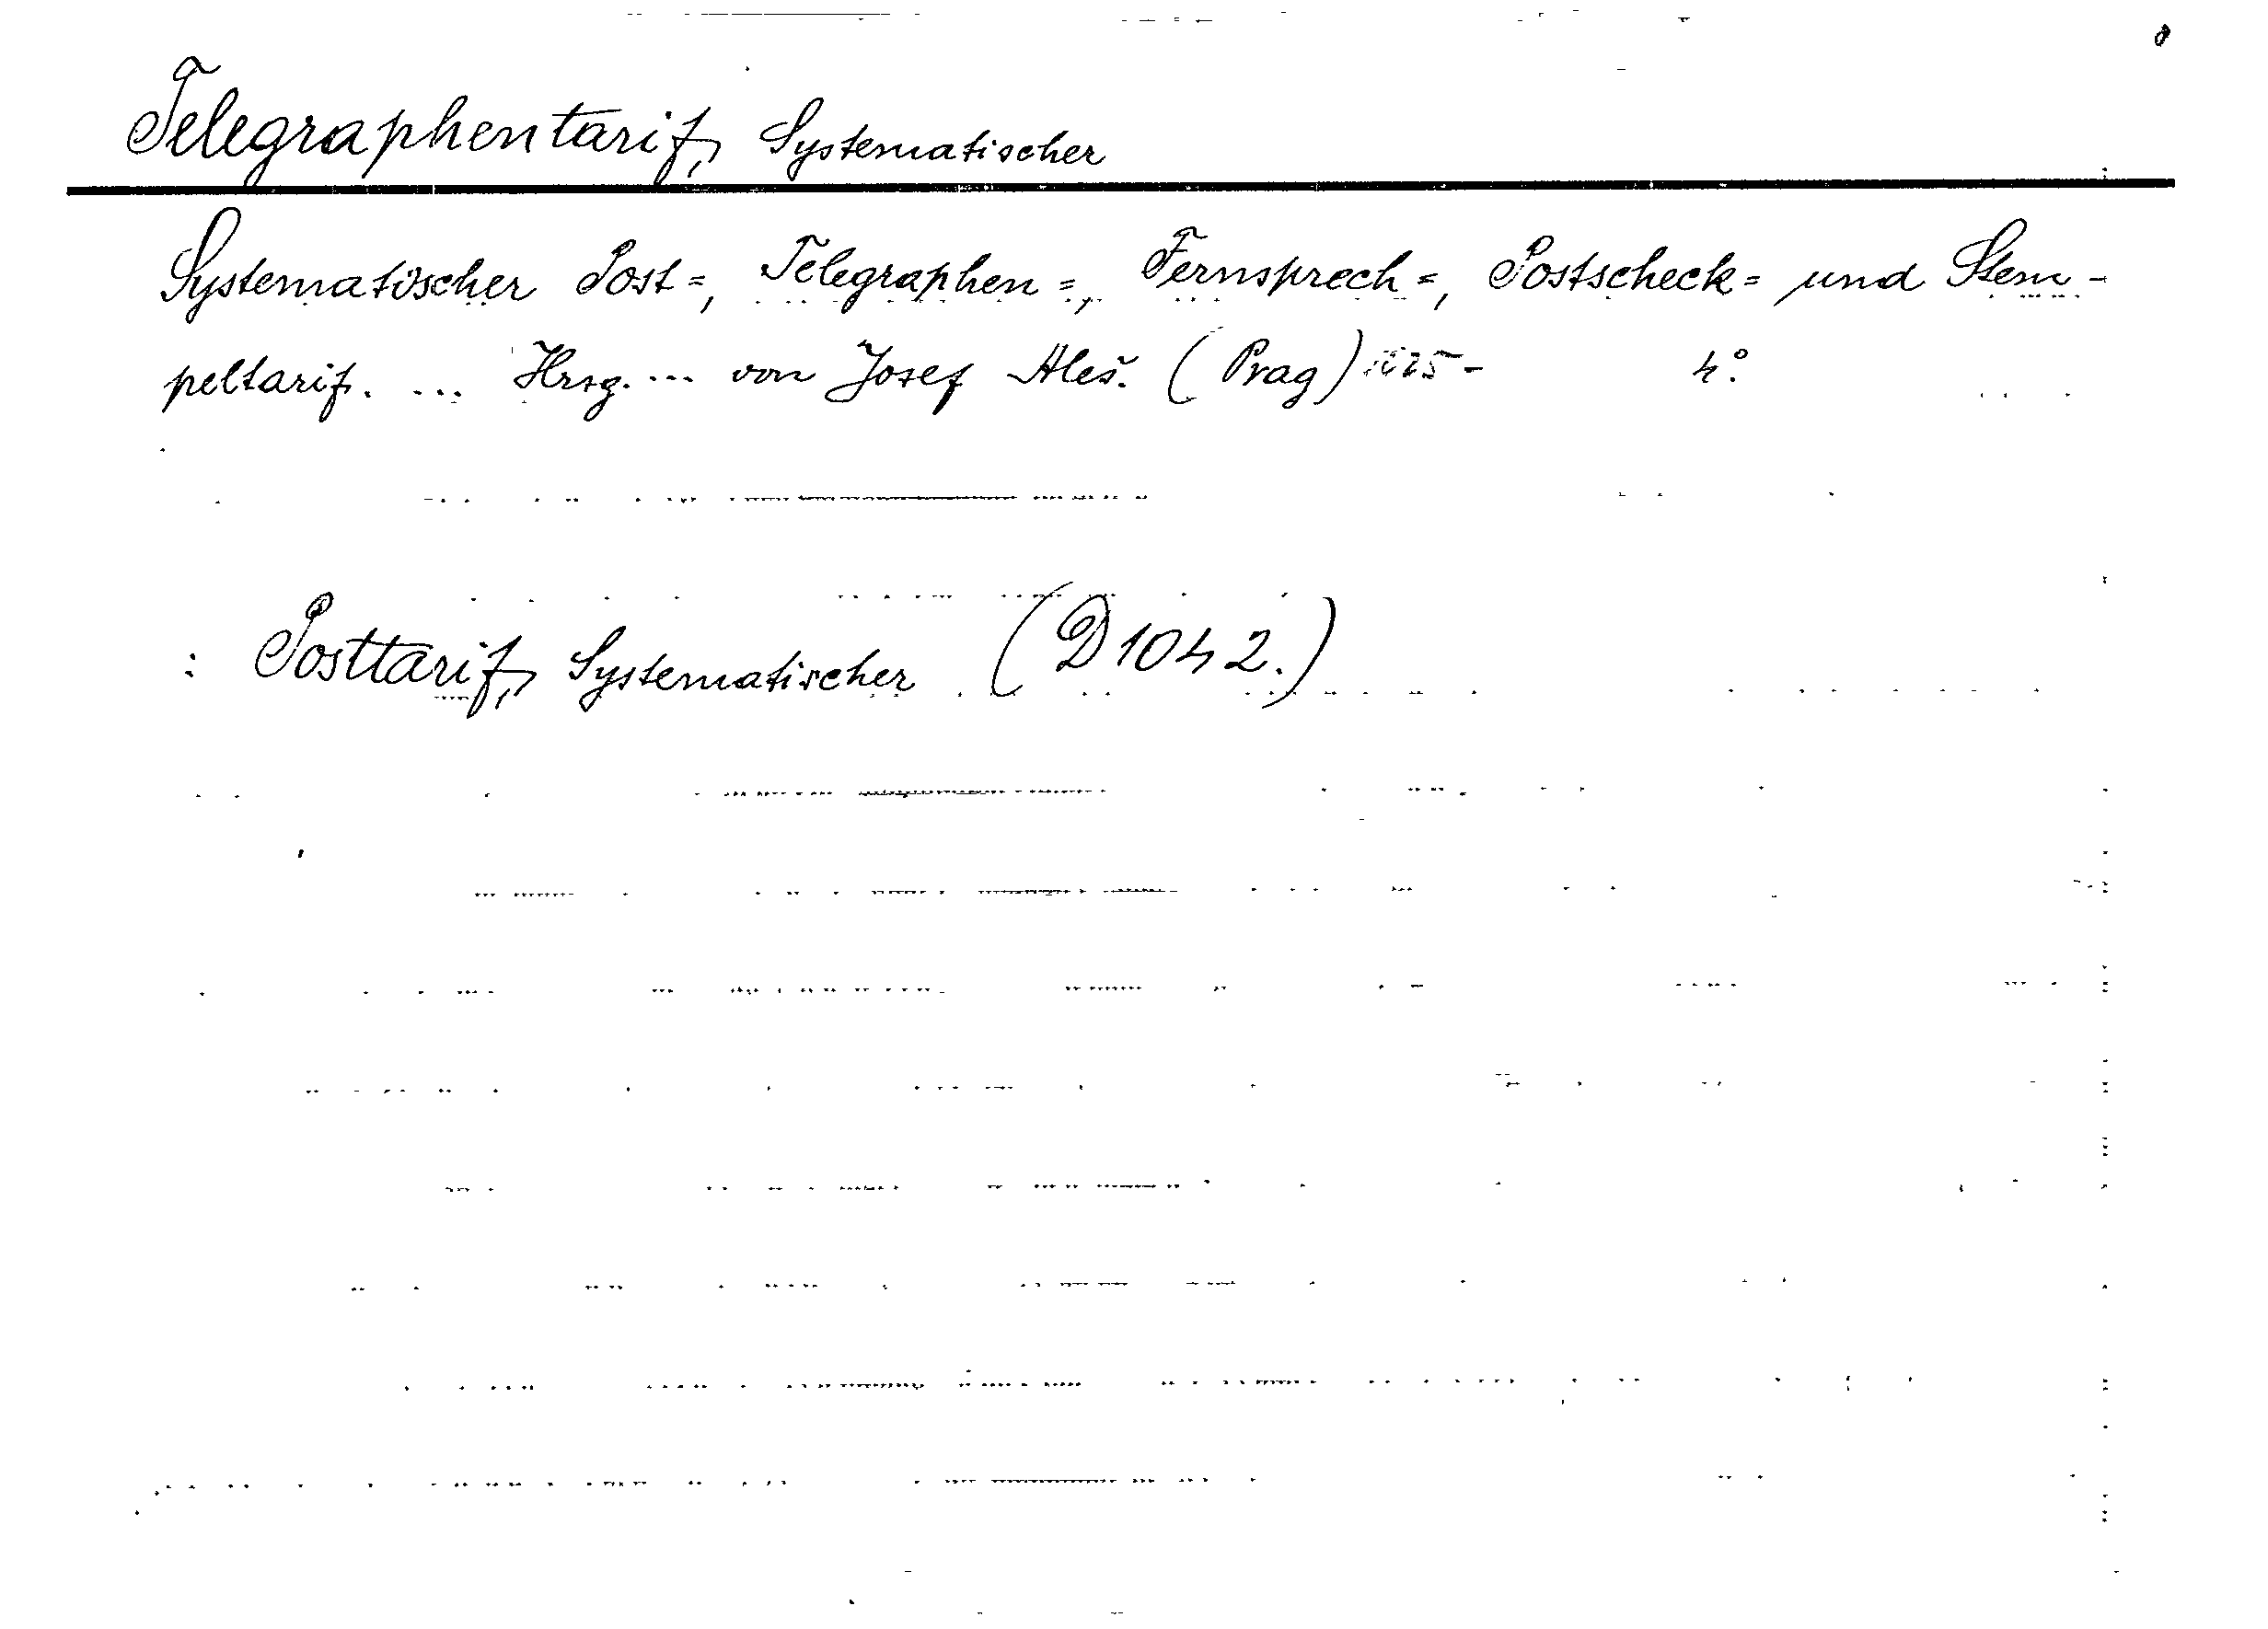 Telegraphentarif, Systematischer
Systematischer Post=, Telegraphen=, Fernsprech=, Postscheck= und Stem-
peltarif. ... Hrsg. ... von Josef Aleš. (Prag) 4°.
: Posttarif, Systematischer (D1042.)